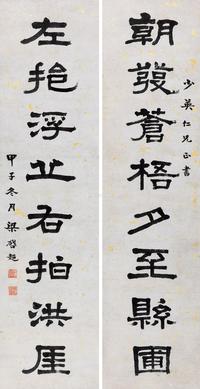 少英仁兄正書
朝發蒼梧夕至縣圃
左挹浮丘右拍洪厓
甲子冬月梁啟超